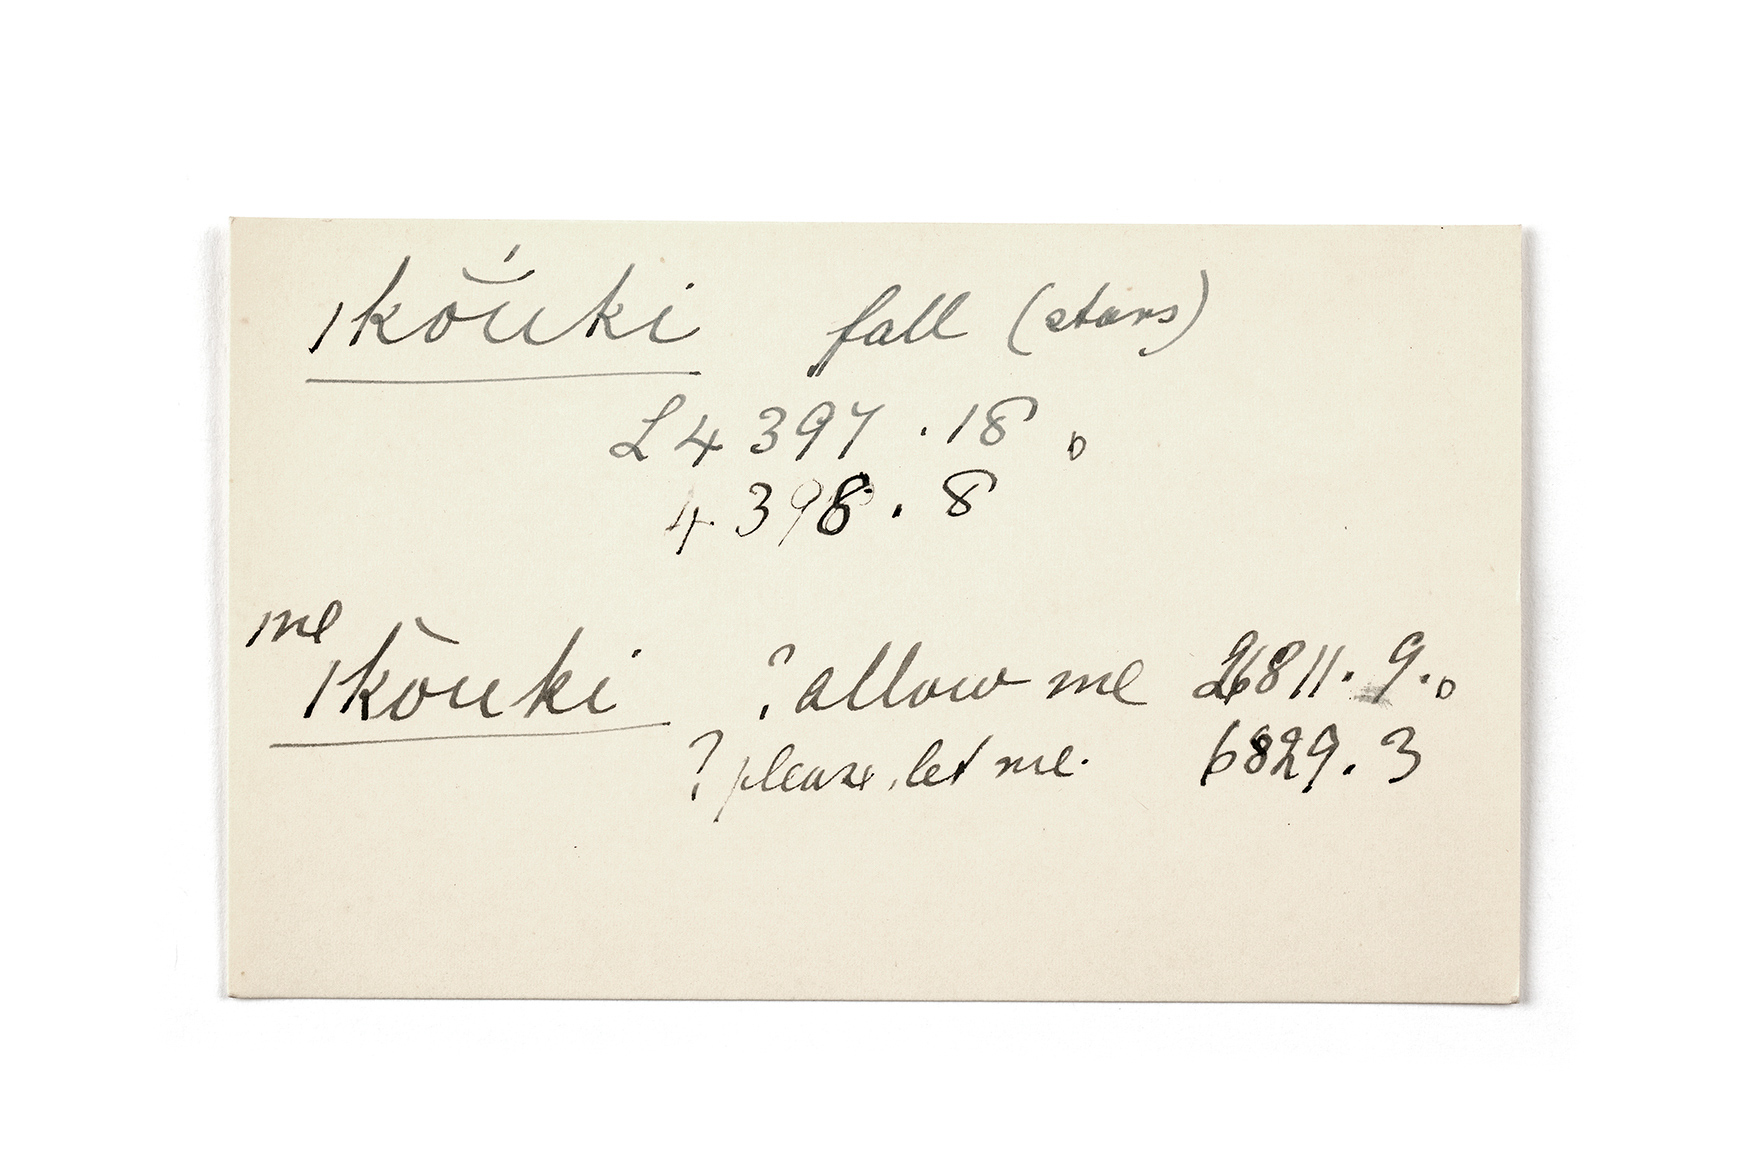 ǀkṓuki fall (stars)
L4397.18.
4398.8
me
ǀkōuki ? allow me 26811.9.
? please let me. 6829.3